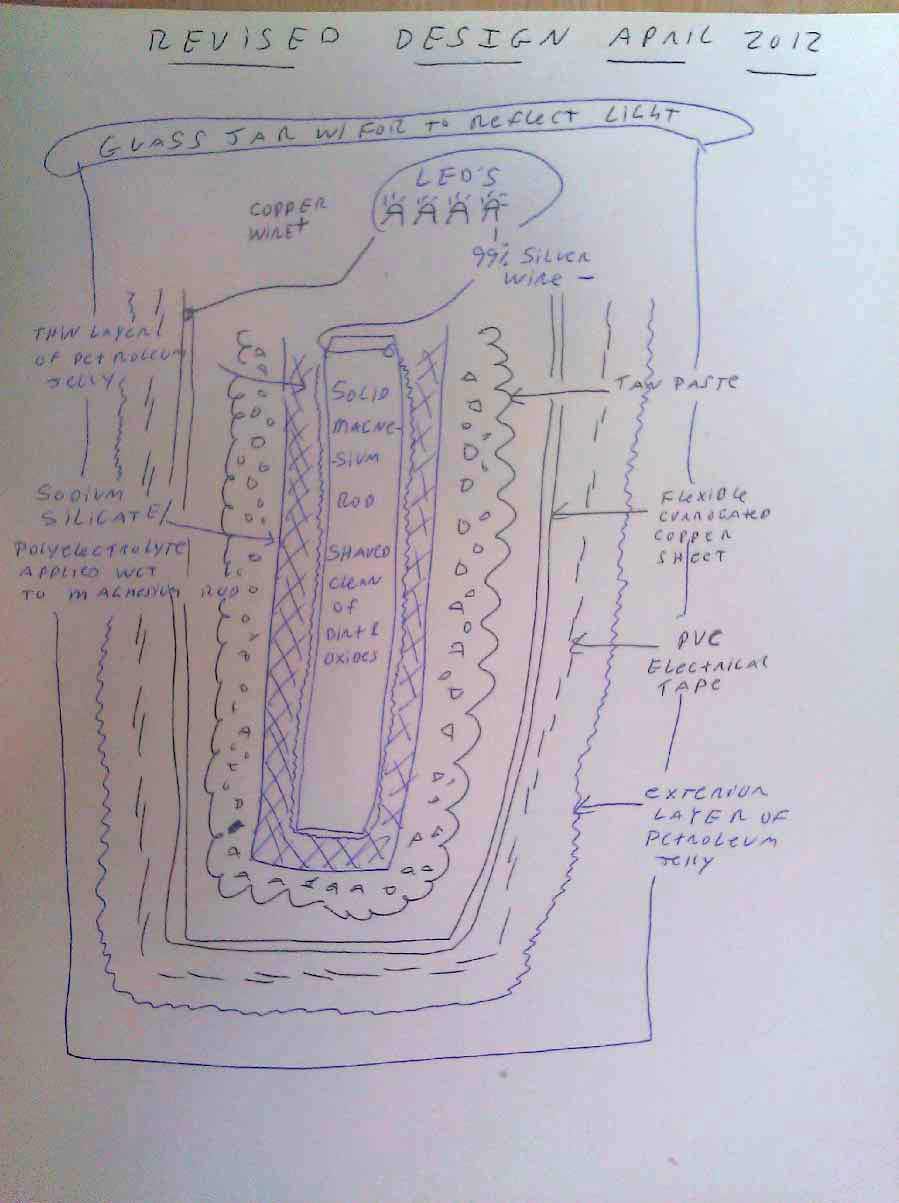 REVISED DESIGN APRIL 2012
GLASS JAR W/ FOIL TO REFLECT LIGHT
LED'S
COPPER
WIRE +
99% SILVER
WIRE -
THIN LAYER
OF PETROLEUM
JELLY
SOLID
MAGNE-
-SIUM
ROD
SHAVED
CLEAN
OF
DIRT &
OXIDES
TAN PASTE
SODIUM
SILICATE/
POLYELECTROLYTE
APPLIED WET
TO MAGNESIUM ROD
FLEXIBLE
CORROGATED
COPPER
SHEET
PVC
ELECTRICAL
TAPE
EXTERIOR
LAYER OF
PETROLEUM
JELLY